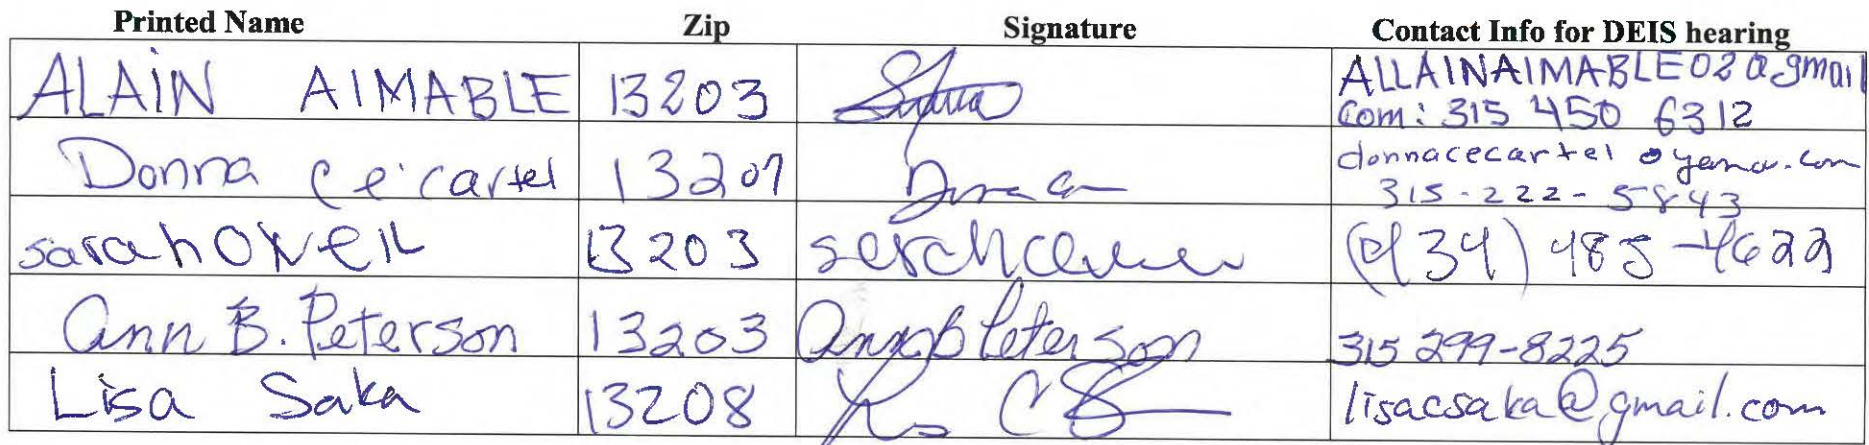 Printed Name Zip Signature Contact Info for DEIS hearing
ALAIN AIMABLE 13203 ALLAINAIMABLE02@gmail
com: 315 450 6312
Donna Ce'cartel 13207 donnacecartel
315-222-5843
sarah ONeil 13203 485-4622
Ann B. Peterson 13203 Ann B Peterson 315 299-8225
Lisa Saka 13208 lisacsaka@gmail.com